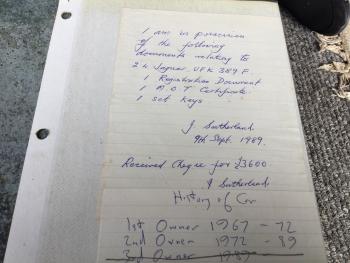 I am in possession
of the following
documents relating to
2.4 Jaguar UFK 389 F.
1 Registration Document
1 M O T Certificate.
1 set keys
J Sutherland.
9th Sept. 1989.
Received Cheque for £3600
J Sutherland.
History of Car
1st Owner 1967 - 72
2nd Owner 1972 - 89
3rd Owner 1989 -